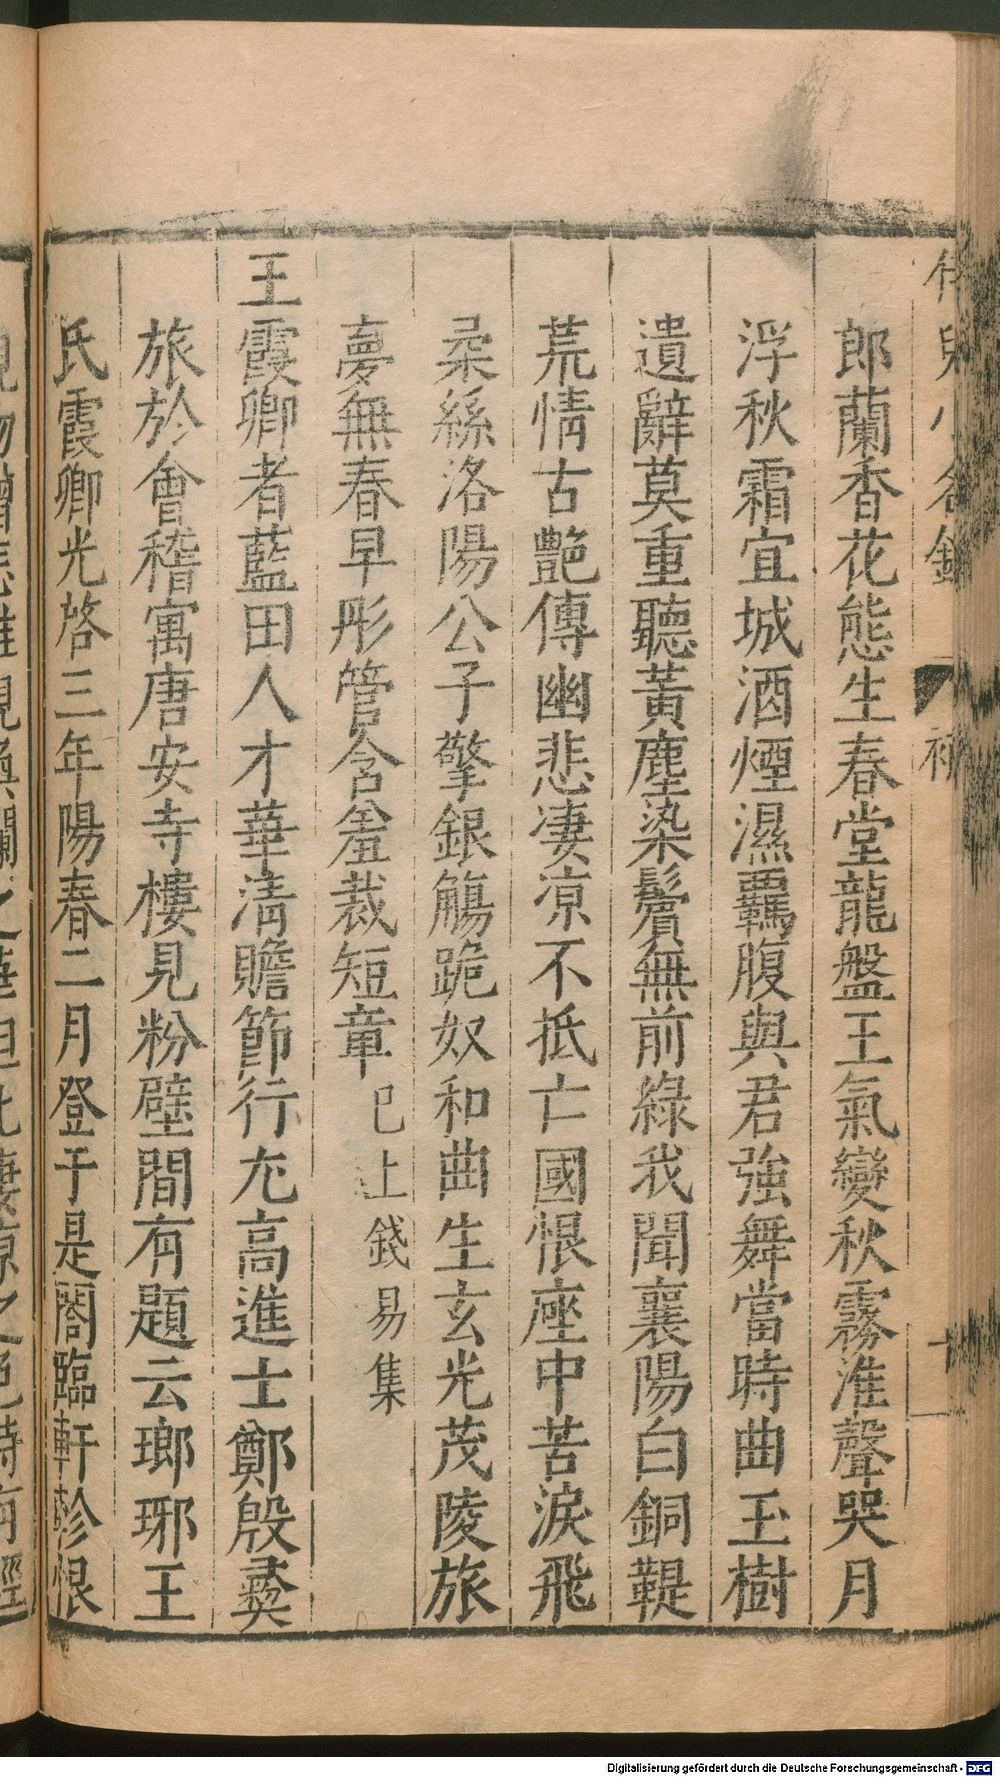 郎蘭香花態生春堂龍盤王氣變秋霧淮聲哭月
浮秋霜宜城酒煙濕羈腹與君強舞當時曲玉樹
遺辭莫重聽黃塵染鬢無前綠我聞襄陽白銅鞮
荒情古艷傳幽悲凄凉不抵亡國恨座中苦淚飛
柔絲洛陽公子擎銀觴跪奴和曲生玄光茂陵旅
夢無春早彤管含羞裁短章 巳上錢易集
王霞卿者藍田人才華清贍節行尤高進士鄭殷彝
旅於會稽寓唐安寺樓見粉壁間有題云瑯琊王
氏霞卿光啓三年陽春二月登于是閣臨軒軫恨
Digitalisierung gefördert durch die Deutsche Forschungsgemeinschaft - DFG